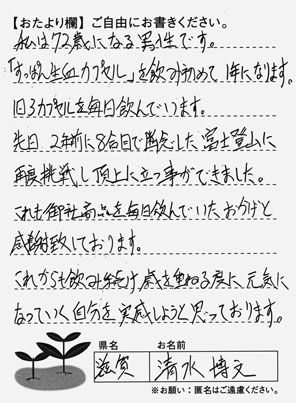 【おたより欄】ご自由にお書きください。
私は72歳になる男性です。
「すっぽん生血カプセル」を飲み初めて1年になります。
1日3カプセルを毎日飲んでいます。
先日、2年前に8合目で断念した富士登山に
再度挑戦し頂上に立つ事ができました。
これも御社商品を毎日飲んでいたおかげと
感謝致しております。
これからも飲み続け、歳を重ねる度に元気に
なっていく自分を実感しようと思っております。
県名 お名前
滋賀 清水 博文
※お願い:匿名はご遠慮ください。